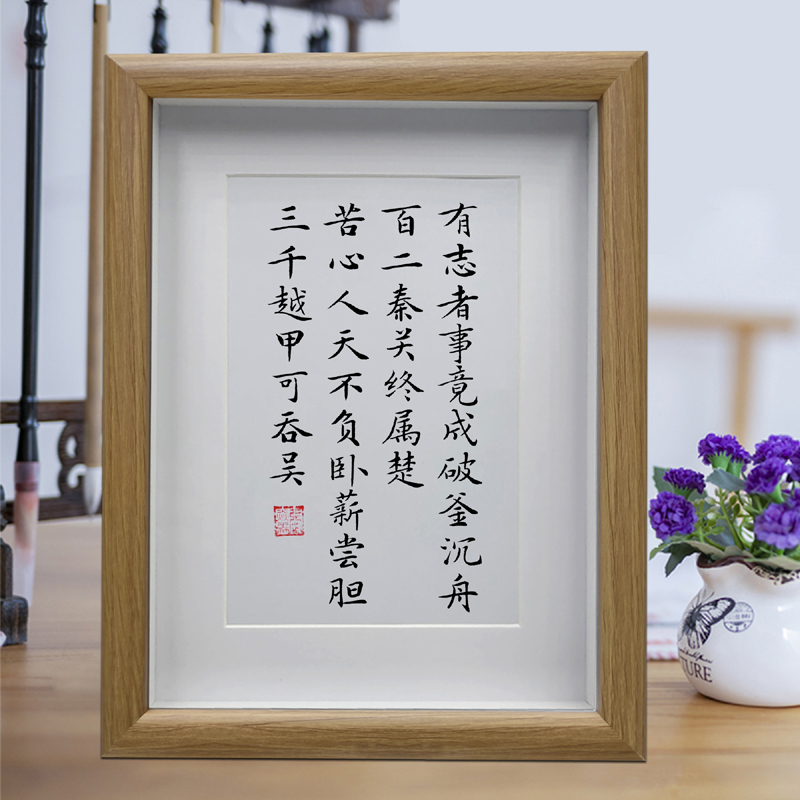 有志者事竟成破釜沉舟
百二秦关终属楚
苦心人天不负卧薪尝胆
三千越甲可吞吴
TURE